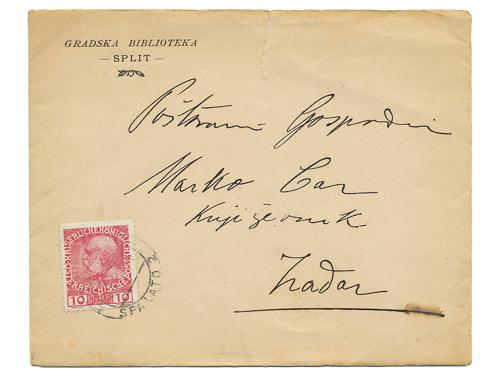 GRADSKA BIBLIOTEKA
— SPLIT —
Poštovani Gospodin
Marko Car
Književnik
Zadar
SERLICHE KÖNIGL
ERREICHISCHE
10 10
SPALATO 2